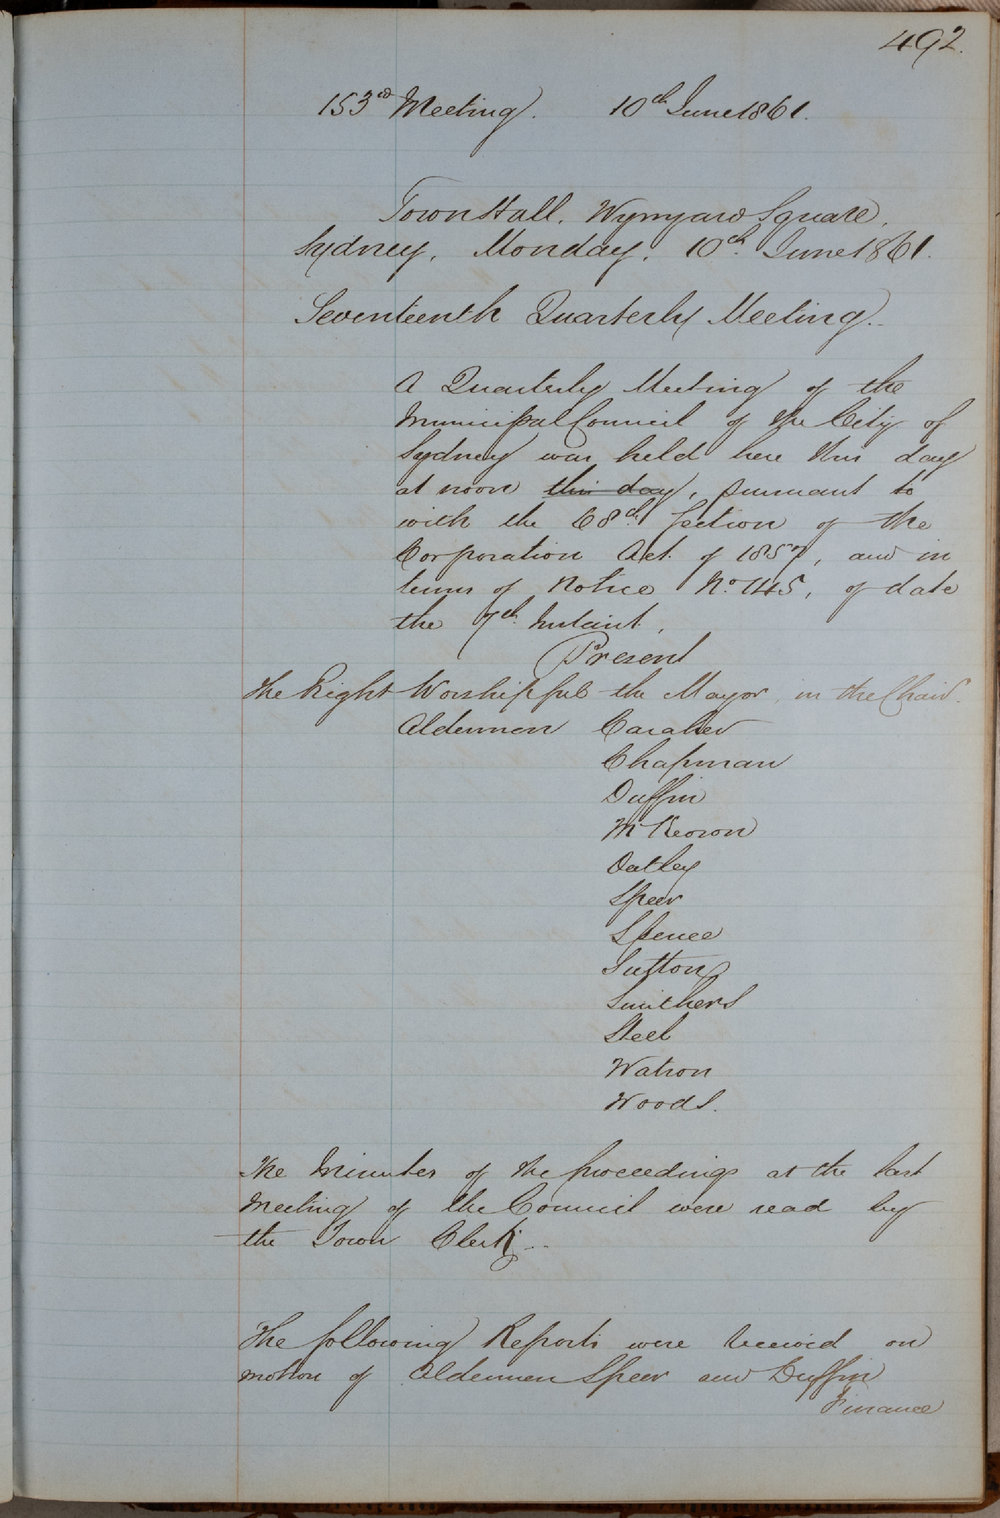 492.
153rd Meeting. 10th June 1861.
Town Hall, Wynyard Square,
Sydney, Monday, 10th June 1861.
Seventeenth Quarterly Meeting.
A Quarterly Meeting of the
Municipal Council of the City of
Sydney was held here this day
at noon this day, pursuant to
with the 68th Section of the
Corporation Act of 1857, and in
terms of Notice No. 145, of date
the 7th Instant,
Present
The Right Worshipful the Mayor, in the Chair.
Aldermen Caraher
Chapman
Duffin
McKeown
Oatley
Speer
Spence
Sutton
Smithers
Steel
Watson
Woods.
The Minutes of the proceedings at the last
Meeting of the Council were read by
the Town Clerk
The following Reports were received on
motion of Aldermen Speer and Duffin
Finance